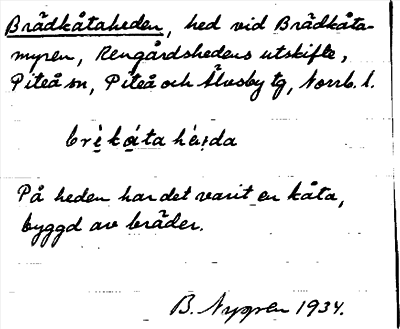 Brädkåtaheden, hed vid Brädkåta-
myren, Rengårdshedens utskifte,
Piteå sn, Piteå och Älvsby tg, Norrb. l.
På heden har det varit en kåta,
byggd av bräder.
B. Nygren 1934.